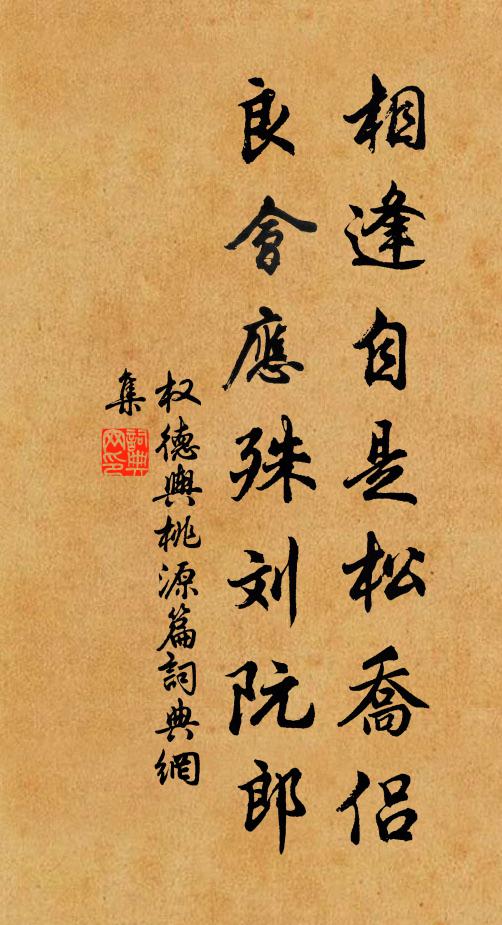 相逢自是松喬侣
良會應殊刘阮郎
权德輿桃源篇詞典網
集
詞典
网印